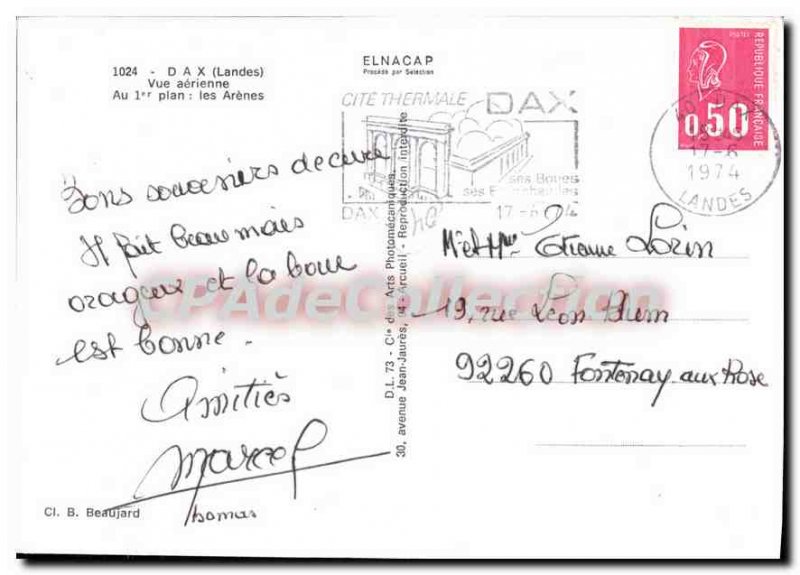 1024 - DAX (Landes)
Vue aérienne
Au 1er plan : les Arènes
ELNACAP
Procédé par Sélection
CITÉ THERMALE DAX
ses Boues
ses
DAX
17 -6
POSTES
REPUBLIQUE FRANÇAISE
0,50
17-6
1974
LANDES
Bons souvenirs de cure
Il fait beau mais
orageux et la boue
est bonne.
Amitiés
Marcel
Thomas
D.L. 73 - Cie des Arts Photomécaniques
30, avenue Jean-Jaurès, 94-Arcueil - Reproduction interdite
Mr et Mme Etienne Lorin
19, rue Léon Blum
92260 Fontenay-aux Rose
Cl. B. Beaujard
CPAdeCollection